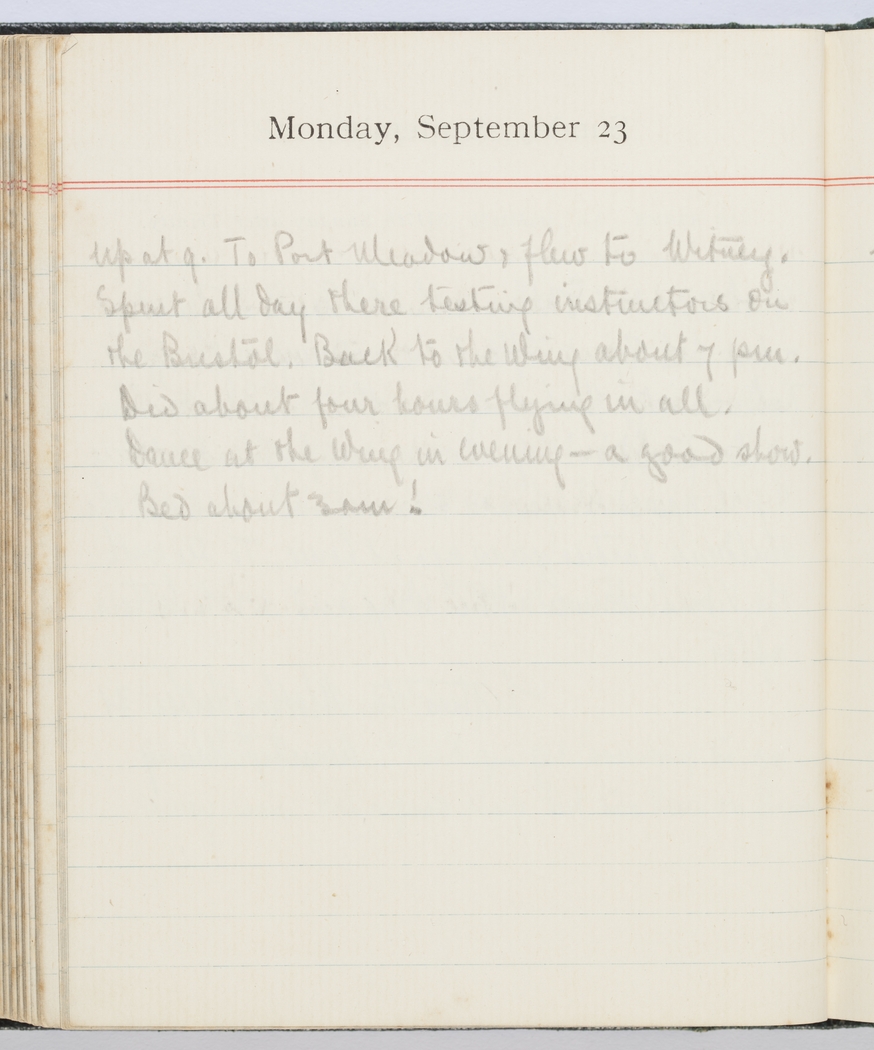 Monday, September 23
Up at 9. To Port Meadow & flew to Witney.
Spent all day there testing instructors on
the Bristol. Back to the Wing about 7 pm.
Did about four hours flying in all.
Dance at the Wing in evening — a good show.
Bed about 3am!